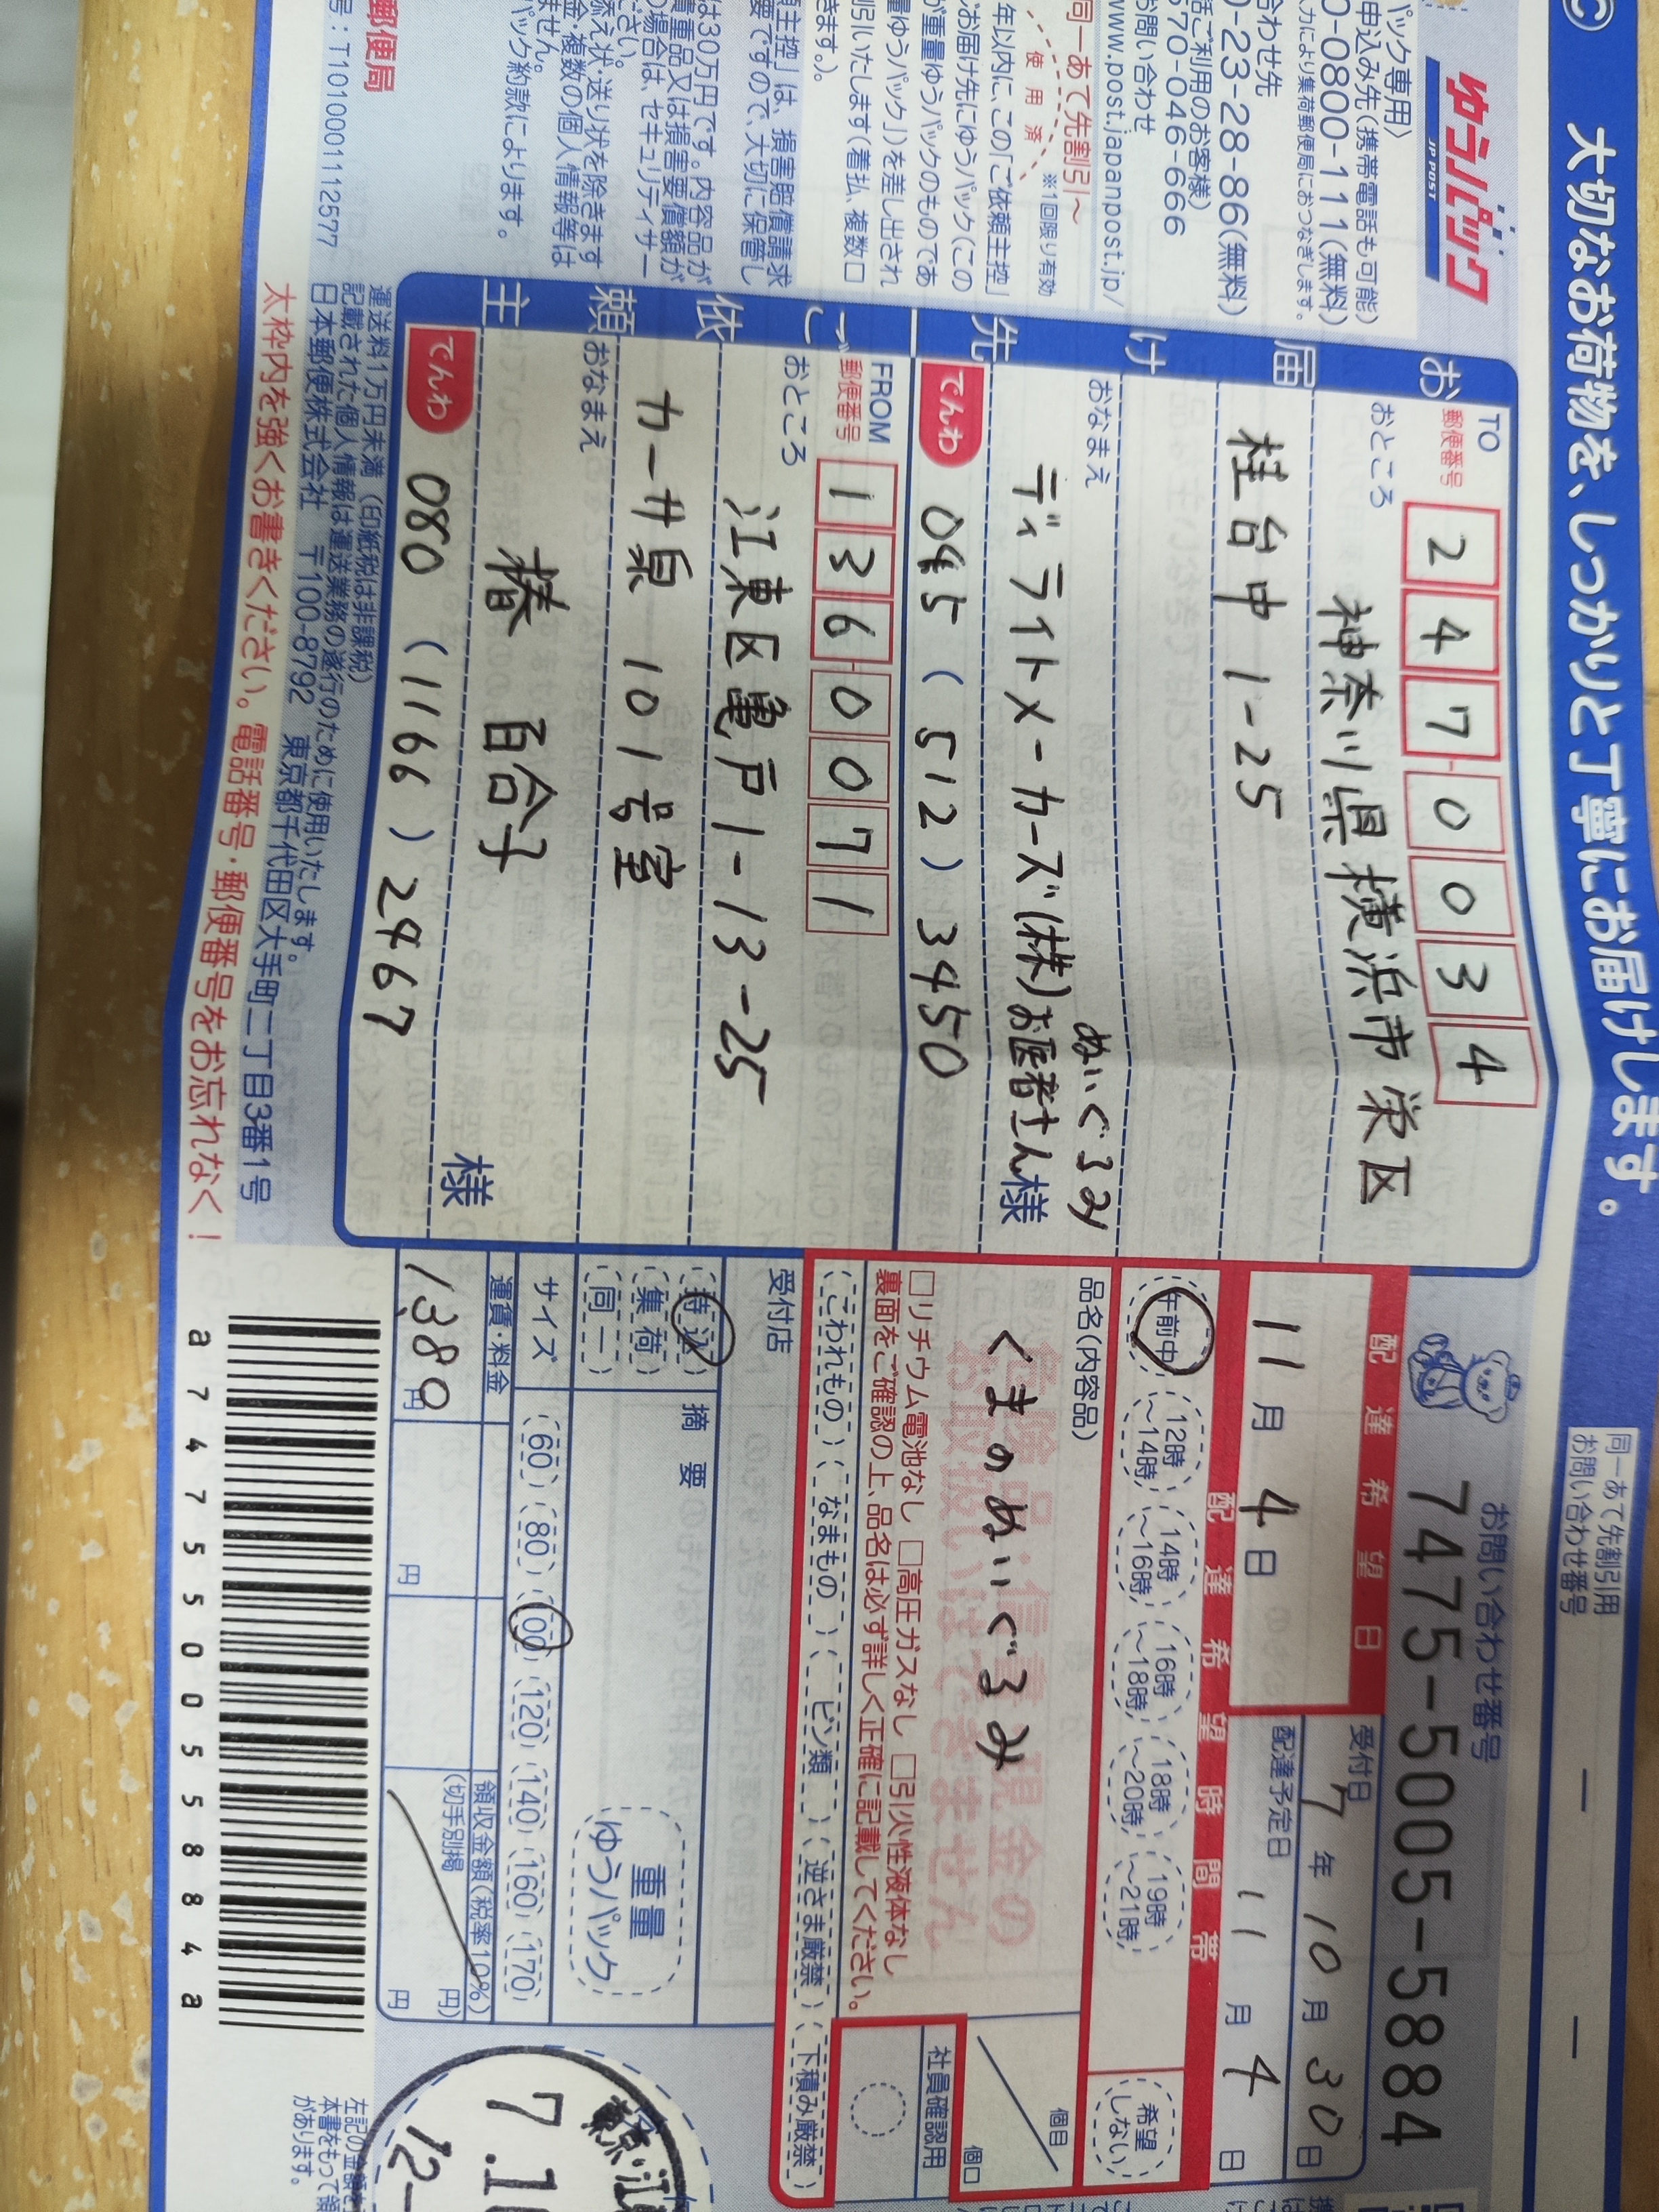 大切なお荷物を、しっかりと丁寧にお届けします。
ゆうパック
JP POST
パック専用〉
申込み先(携帯電話も可能)
0-0800-111(無料)
力により集荷郵便局におつなぎします。
合わせ先
0-23-28-86(無料)
話ご利用のお客様)
570-046-666
お問い合わせ
www.post.japanpost.jp/
同一あて先割引~
使用済
※1回限り有効
年以内に、この「ご依頼主控」
じお届け先にゆうパック(この
が重量ゆうパックのものであ
量ゆうパック」)を差し出され
割引いたします(着払、複数口
きます。)。
頼主控」は、損害賠償請求
要ですので、大切に保管し
は30万円です。内容品が
貴重品又は損害要償額が
の場合は、セキュリティサー
ださい。
添え状・送り状を除きます
金、複数の個人情報等は
ません。
パック約款によります。
郵便局
号:T1010001112577
お届け先
TO
郵便番号
247-0034
おところ
神奈川県横浜市栄区
桂台中1-25
おなまえ
ぬいぐるみ
ディライトメーカーズ(株)お医者さん様
でんわ
045(512)3450
ご依頼主
FROM
郵便番号
136-0071
おところ
江東区亀戸1-13-25
カーサ泉 101号室
おなまえ
椿 百合子
様
でんわ
080(1166)2467
運送料1万円未満(印紙税は非課税)
記載された個人情報は運送業務の遂行のために使用いたします。
日本郵便株式会社 〒100-8792 東京都千代田区大手町二丁目3番1号
太枠内を強くお書きください。電話番号・郵便番号をお忘れなく!
同一あて先割引用
お問い合わせ番号
お問い合わせ番号
7475-5005-5884
配達希望日
11月4日
受付日
7年10月30日
配達予定日
11月4日
配達希望時間帯
午前中
12時~14時
14時~16時
16時~18時
18時~20時
19時~21時
希望しない
品名(内容品)
くまのぬいぐるみ
個目
個口
□リチウム電池なし □高圧ガスなし □引火性液体なし
裏面をご確認の上、品名は必ず詳しく正確に記載してください。
こわれもの
なまもの
ビン類
逆さま厳禁
下積み厳禁
社員確認用
受付店
持込
集荷
同一
摘要
重量
ゆうパック
サイズ
60 80 100 120 140 160 170
運賃・料金
1,380円
円
領収金額(税率10%)
(切手別揭 円)
円
a747550055884a
東京・江
7.1
12-
左記の金額を
本書をもって領
があります。